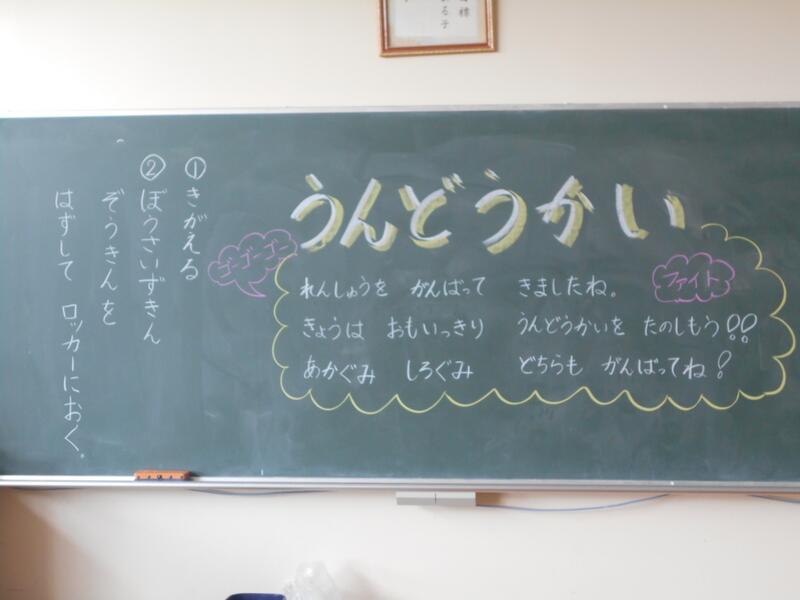 うんどうかい
ゴーゴーゴー
ファイト
れんしゅうを がんばって きましたね。
きょうは おもいっきり うんどうかいを たのしもう!!
あかぐみ しろぐみ どちらも がんばってね!
①きがえる
②ぼうさいずきん
ぞうきんを
はずして ロッカーにおく。